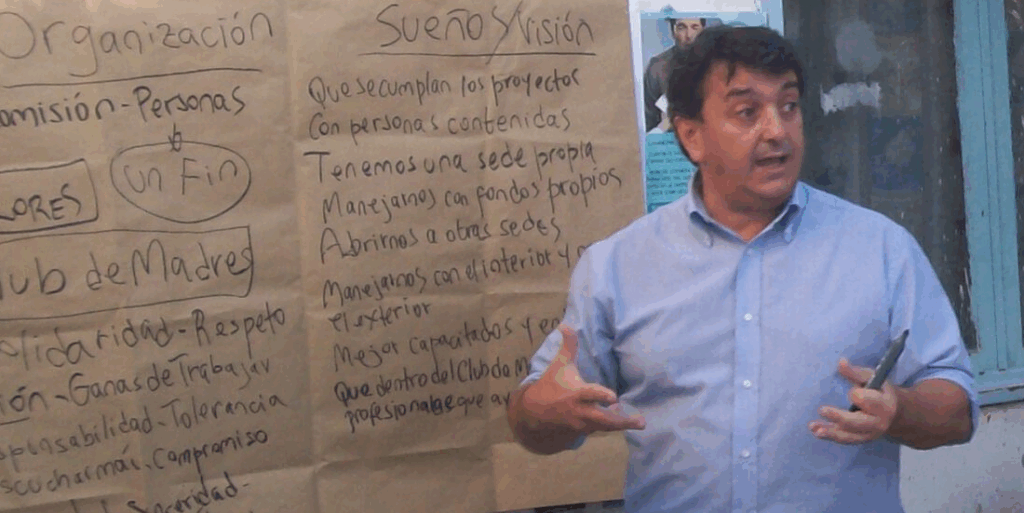 Organización
omisión - Personas
un Fin
LORES
lub de Madres
olidaridad - Respeto
ión - Ganas de Trabajar
sponsabilidad - Tolerancia
scuchar más. Compromiso
Sinceridad -
Sueño y Visión
Que se cumplan los proyectos
Con personas contenidas
Tenemos una sede propia
Manejarnos con fondos propios
Abrirnos a otras sedes
Manejarnos con el interior y
el exterior
Mejor capacitados y en
Que dentro del Club de M